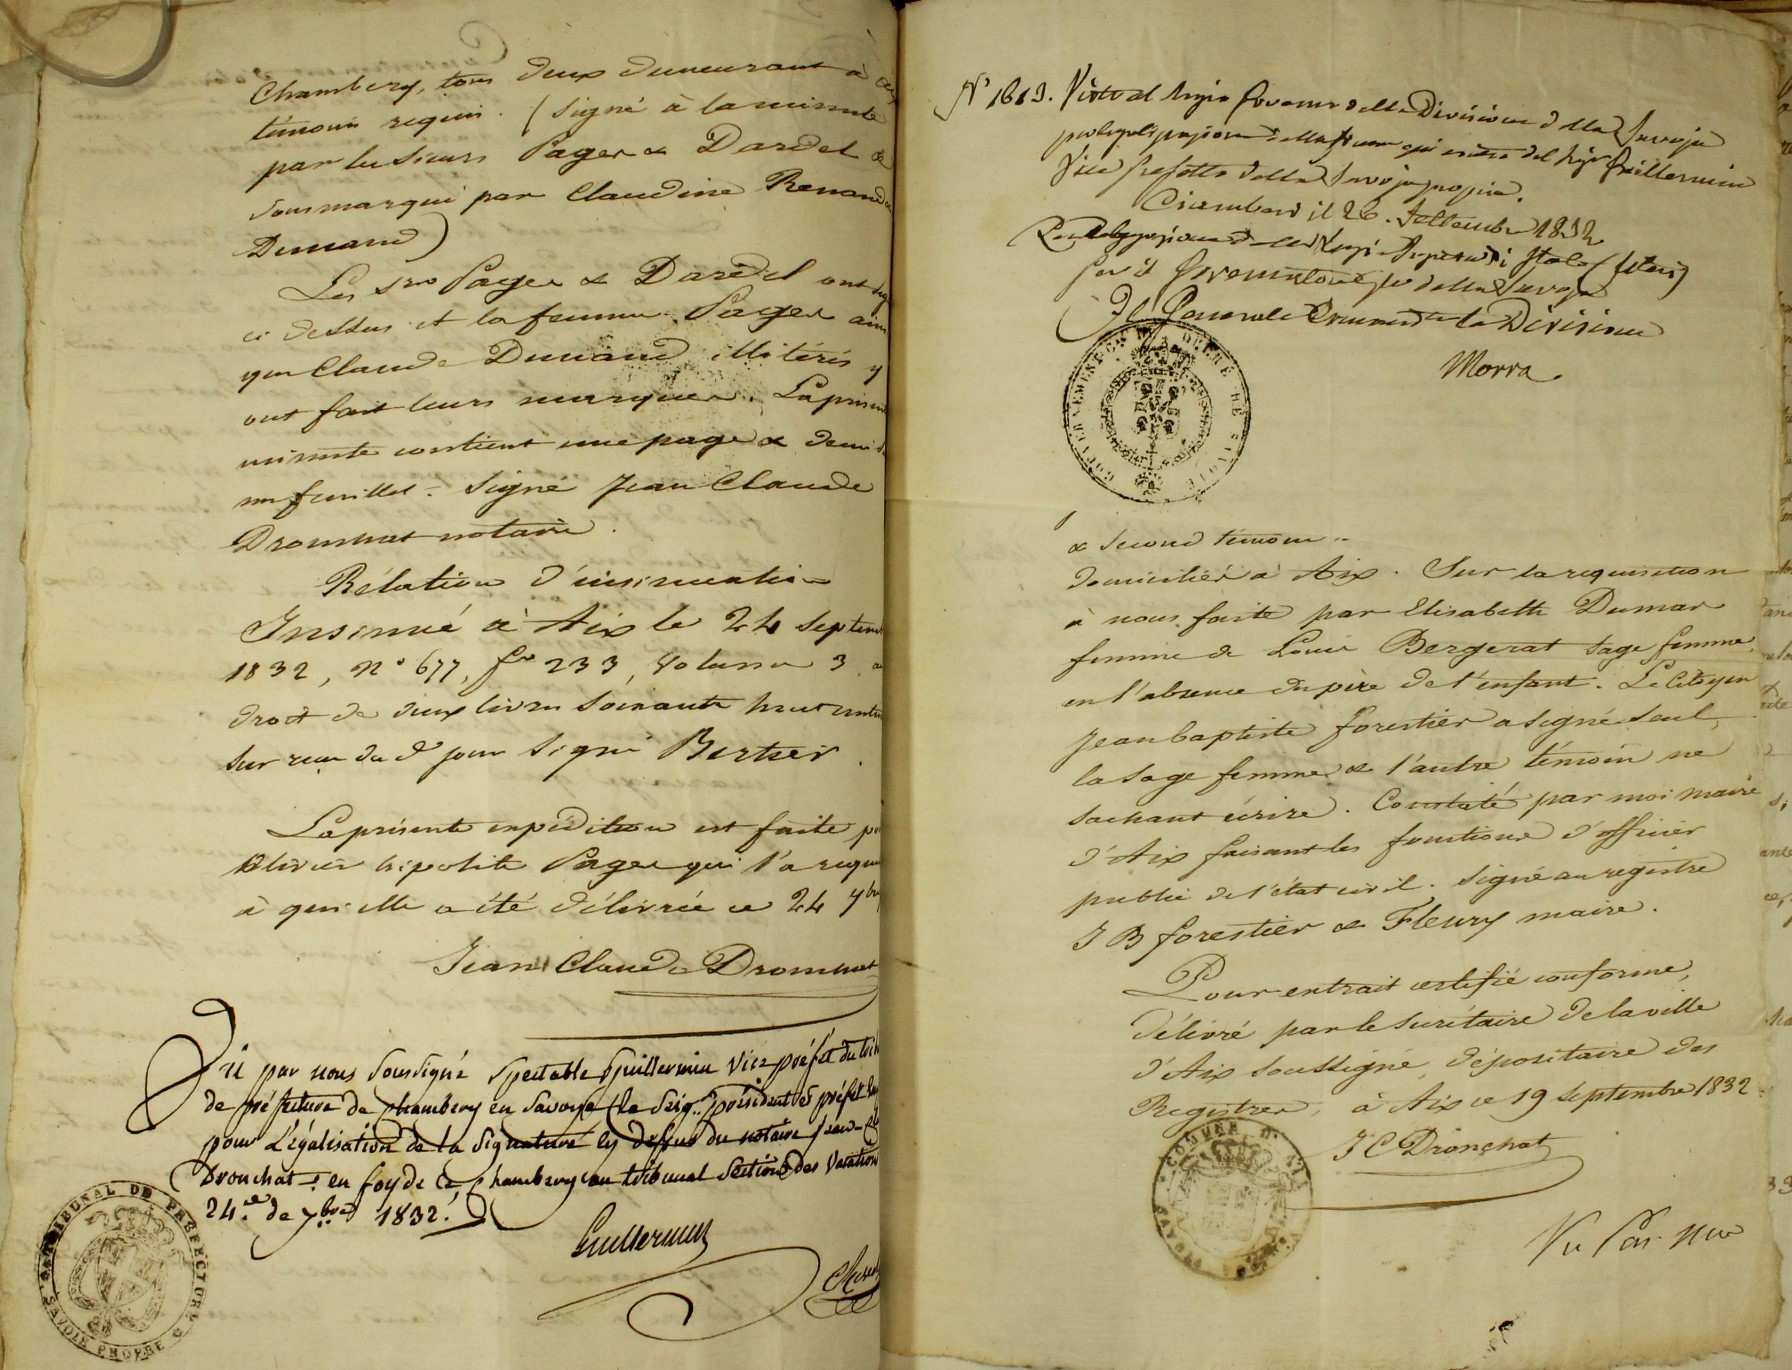 Chambery, tous deux demeurant à
témoins requis. (Signé à la minute
par les Sieurs Pager & Dardel &
sousmarqué par Claudine Renaud
Dunand)
Les Srs Pager & Dardel ont
ci dessus et la femme Pager
que Claude Dunand illitérés y
ont fait leurs marques. La
minute contient une page & demi
un feuillet. Signé Jean Claude
Dronchat notaire.
Rélation d'insinuation
Insinué à Aix le 24
1832, n° 677, fo 233, Volume 3
droit de deux livres soixante huit
sur reçu du d jour signé Bertier.
La présente expédition est faite
Olivier hipolite Pager qui l'a
à qui elle a été délivrée ce 24 7bre
Jean Claude Dronchat
Vû par nous Soussigné Spectable Guillermin Vice préfet du
de préfecture de Chambery en Savoye (le Seigr président & préfet
pour Légalisation de la Signature cy dessus du notaire Jean
Dronchat: en foy de ce, Chambery au tribunal Section des Vacations
24.e de 7bre 1832.
Guillermin
TRIBUNAL DE PREFECTURE
SAVOIE PROPRE
N° 1613. Visto al Regio Governo della Divisione della Savoja
per la qui Vice Prefetto della Savoja propria.
Ciamberì il 26. Settembre 1832
Il Generale Comandte la Divisione
Morra
& second témoin
domicilié à Aix. Sur la requisition
à nous faite par Elisabeth Dumar
femme de Louis Bergerat sage femme,
en l'absence du père de l'enfant. Le Citoyen
Jean baptiste forestier a signé seul,
la sage femme & l'autre témoin ne
sachant écrire. Constaté par moi maire
d'Aix faisant les fonctions d'officier
public de l'état civil. Signé au registre
J B forestier & Fleury maire.
Pour extrait certifié conforme,
délivré par le secrétaire de la ville
d'Aix soussigné, dépositaire des
Registres, à Aix ce 19 septembre 1832
J C Dronchat